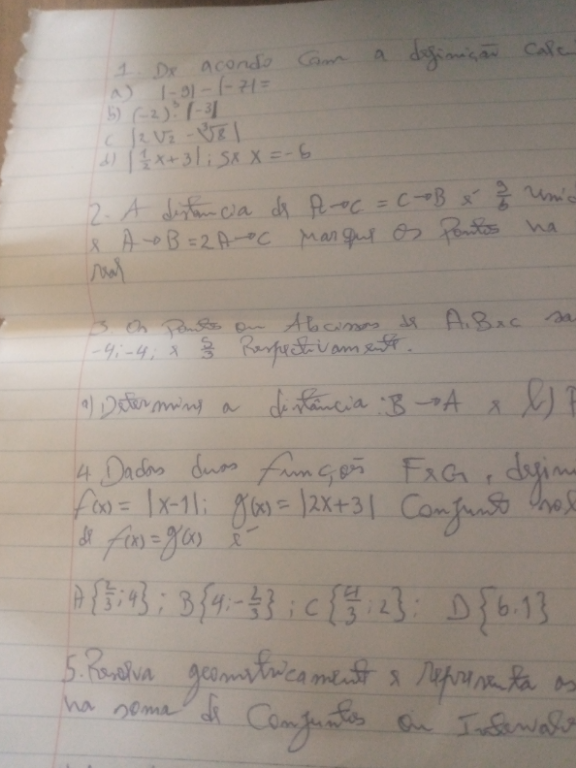 1. De acordo com a definição calc
a) |-9| - |-7| =
b) (-2)³ : |-3|
c |2√2 - ∛8|
d) |1/2 x + 3| ; se x = -6
2. A distância de A→C = C→B é 9/5 unid
e A→B = 2A→C marque os Pontos na
real
3. Os Pontos ou Abcissas de A, B e C sa
-4; -4; e 5/3 Respectivamente.
a) Determine a distância: B→A e b)
4. Dadas duas funções F e G, defini
f(x) = |x-1|; g(x) = |2x+3| Conjunto sol
de f(x) = g(x) é
A{2/3; 4}; B{4; -2/3}; C{4/3; 2}; D{6.1}
5. Resolva geometricamente e representa os
na soma de Conjuntos ou Intervalo